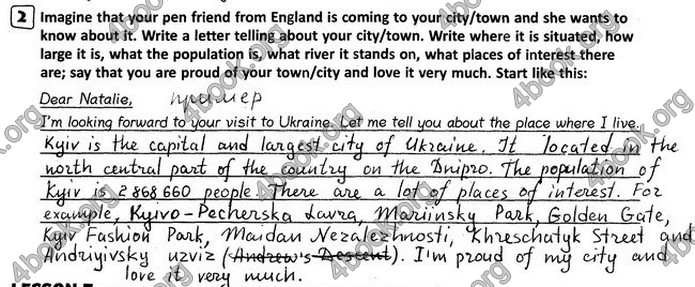 2 Imagine that your pen friend from England is coming to your city/town and she wants to
know about it. Write a letter telling about your city/town. Write where it is situated, how
large it is, what the population is, what river it stands on, what places of interest there
are; say that you are proud of your town/city and love it very much. Start like this:
Dear Natalie, пример
I'm looking forward to your visit to Ukraine. Let me tell you about the place where I live.
Kyiv is the capital and largest city of Ukraine. It located in the
north central part of the country on the Dnipro. The population of
Kyiv is 2 868 660 people. There are a lot of places of interest. For
example, Kyivo-Pecherska Lavra, Mariinsky Park, Golden Gate,
Kyiv Fashion Park, Maidan Nezalezhnosti, Khreschatyk Street and
Andriyivsky uzviz (Andrew's Descent). I'm proud of my city and
love it very much.
4book.org